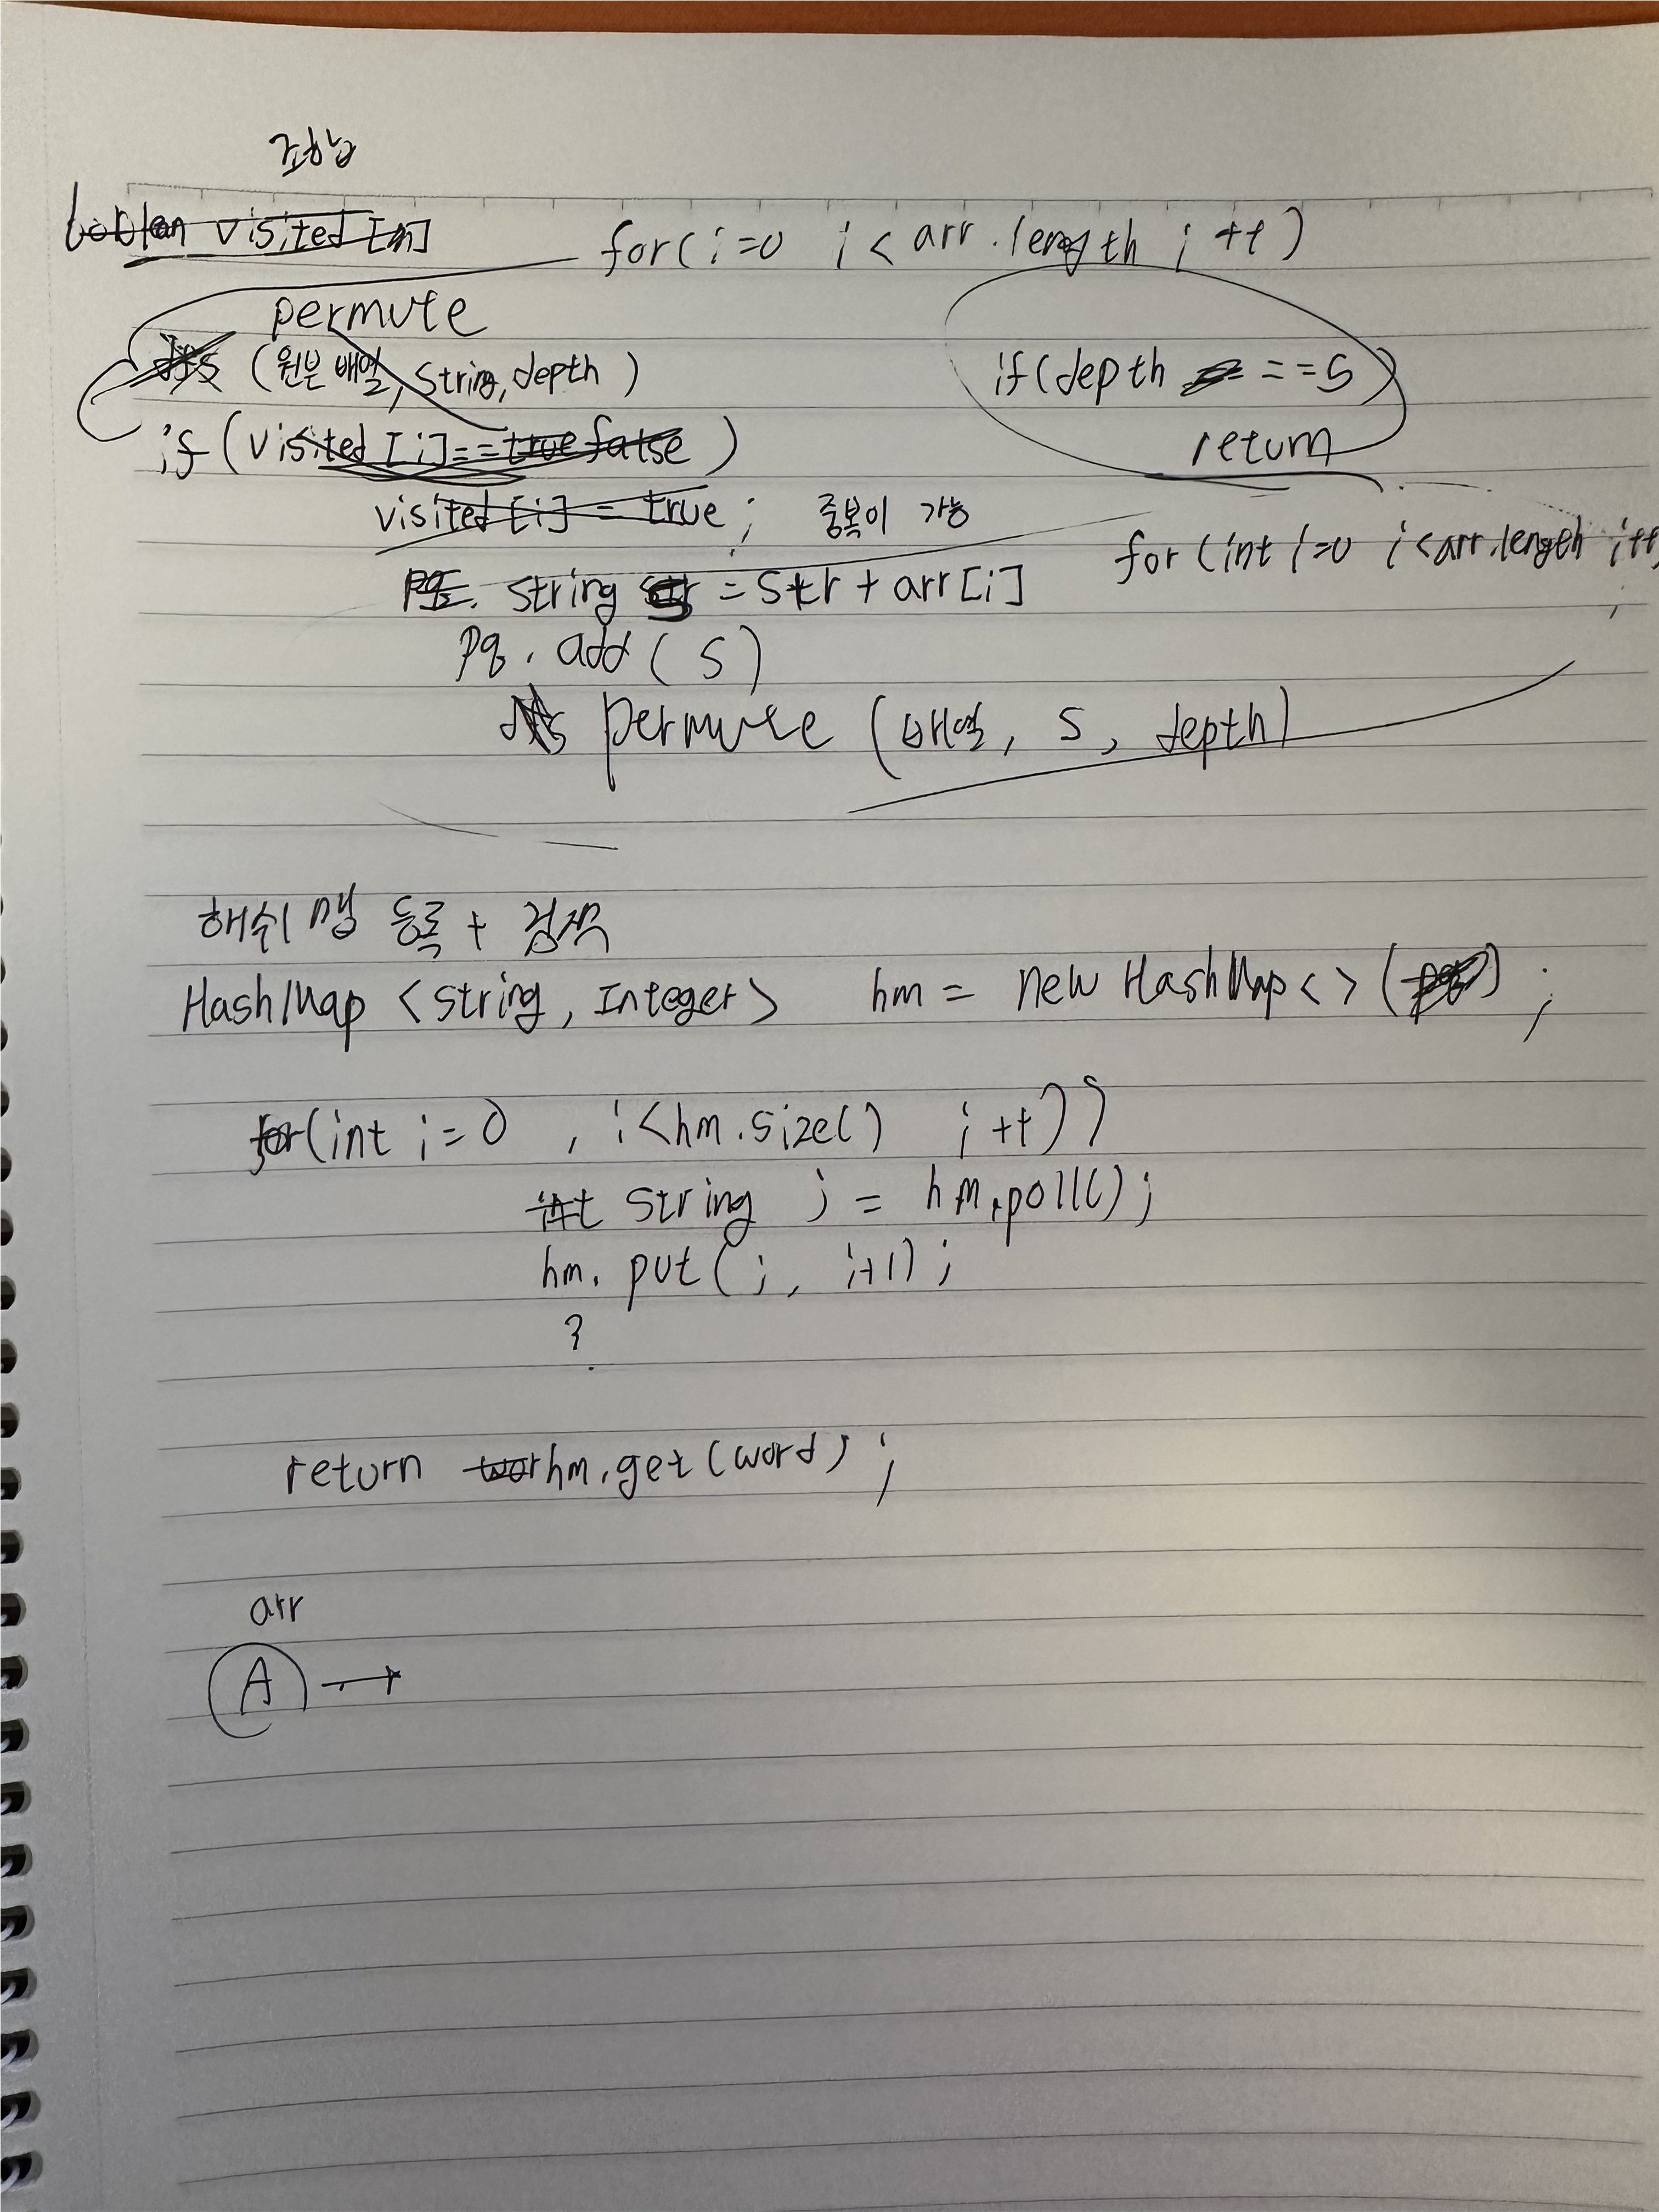 조합
boolean visited [n]
for(i=0 i< arr.length i++)
permute
dfs (원본 배열, String, depth)
if(depth ==5)
return
if (visited [i]==true false)
visited [i] = true; 중복이 가능
for (int i=0 i<arr.length i++
pq. string = str + arr[i]
pq. add(s)
dfs permute (배열, s, depth)
해쉬맵 등록 + 검색
HashMap <string, Integer> hm = new HashMap<> (pq);
for(int i=0 , i<hm.size() i++))
int string j = hm.poll();
hm. put(j, i+1);
?
return wor hm.get(word);
arr
A →